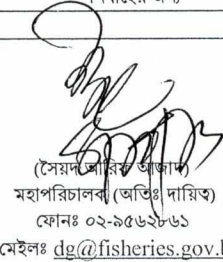 (সৈয়দ আরিফ আজাদ)
মহাপরিচালক (অতিঃ দায়িত্ব)
ফোনঃ ০২-৯৫৬২৮৬১
মেইলঃ dg@fisheries.gov.b